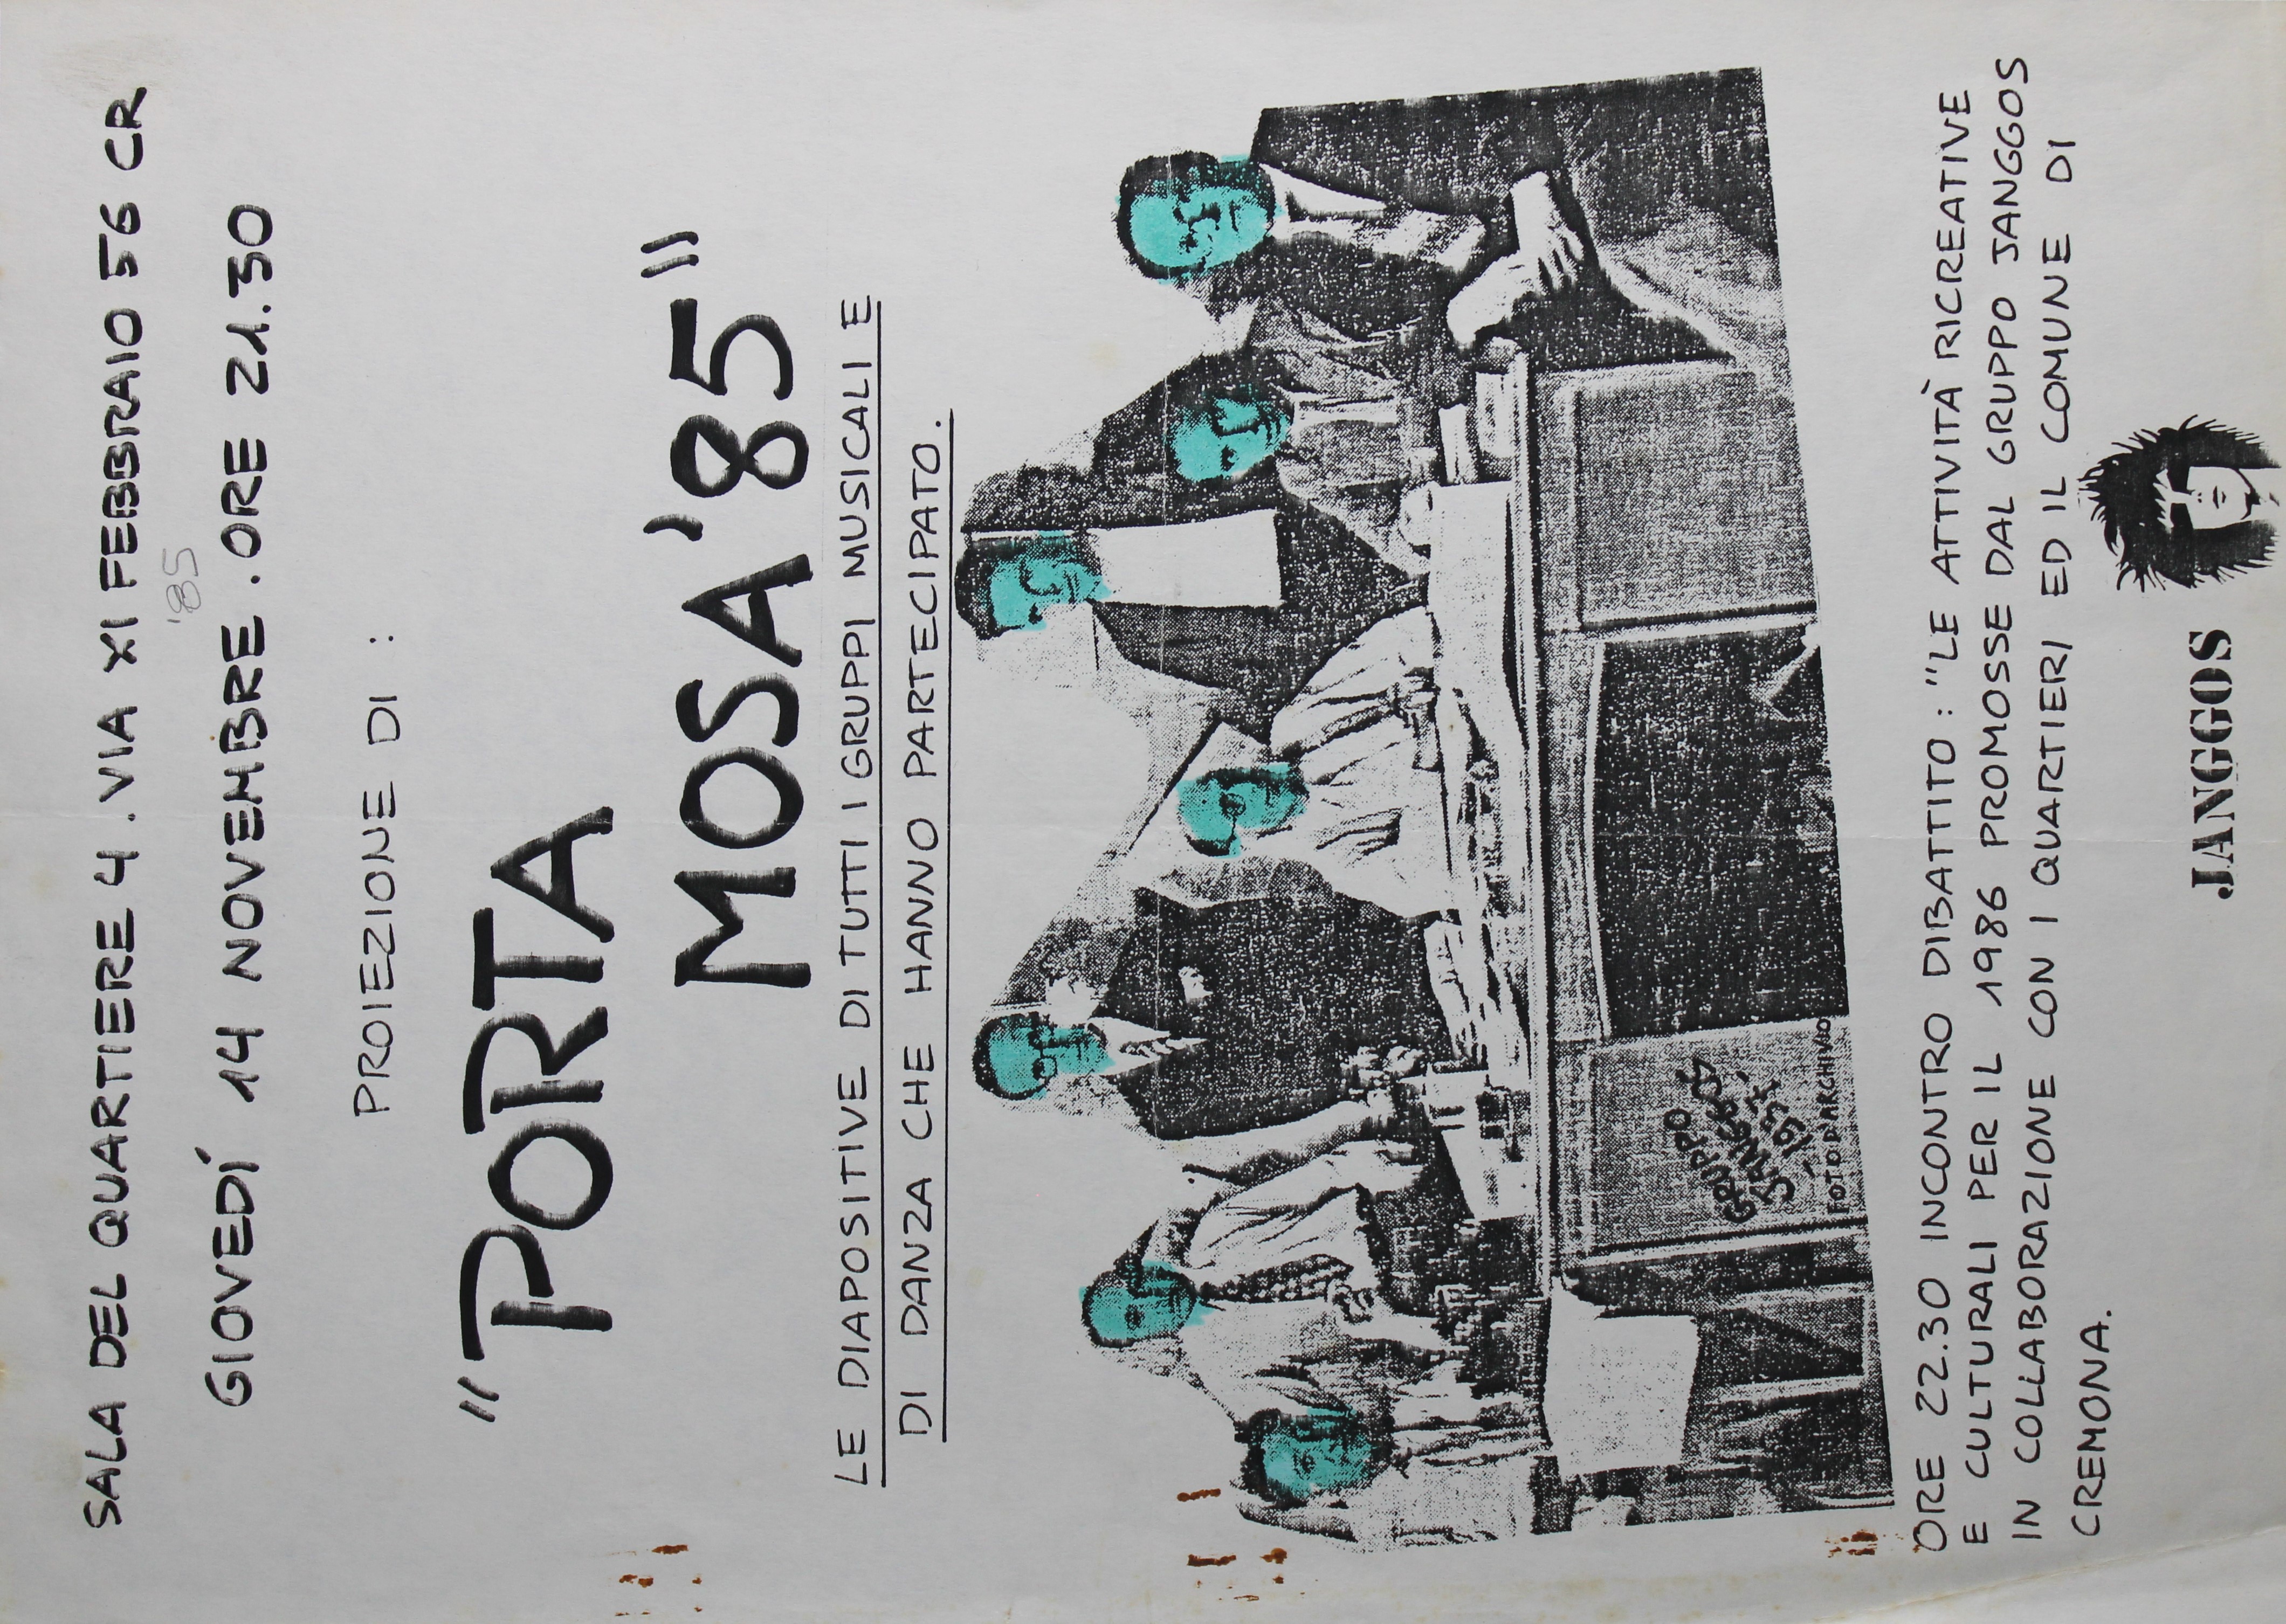 SALA DEL QUARTIERE 4. VIA XI FEBBRAIO 56 CR
'85
GIOVEDÍ 14 NOVEMBRE. ORE 21.30
PROIEZIONE DI :
"PORTA
MOSA '85"
LE DIAPOSITIVE DI TUTTI I GRUPPI MUSICALI E
DI DANZA CHE HANNO PARTECIPATO.
GRUPPO
JANGGOS
FOTO D'ARCHIVIO
ORE 22.30 INCONTRO DIBATTITO : "LE ATTIVITÀ RICREATIVE
E CULTURALI PER IL 1986 PROMOSSE DAL GRUPPO JANGGOS
IN COLLABORAZIONE CON I QUARTIERI ED IL COMUNE DI
CREMONA.
JANGGOS